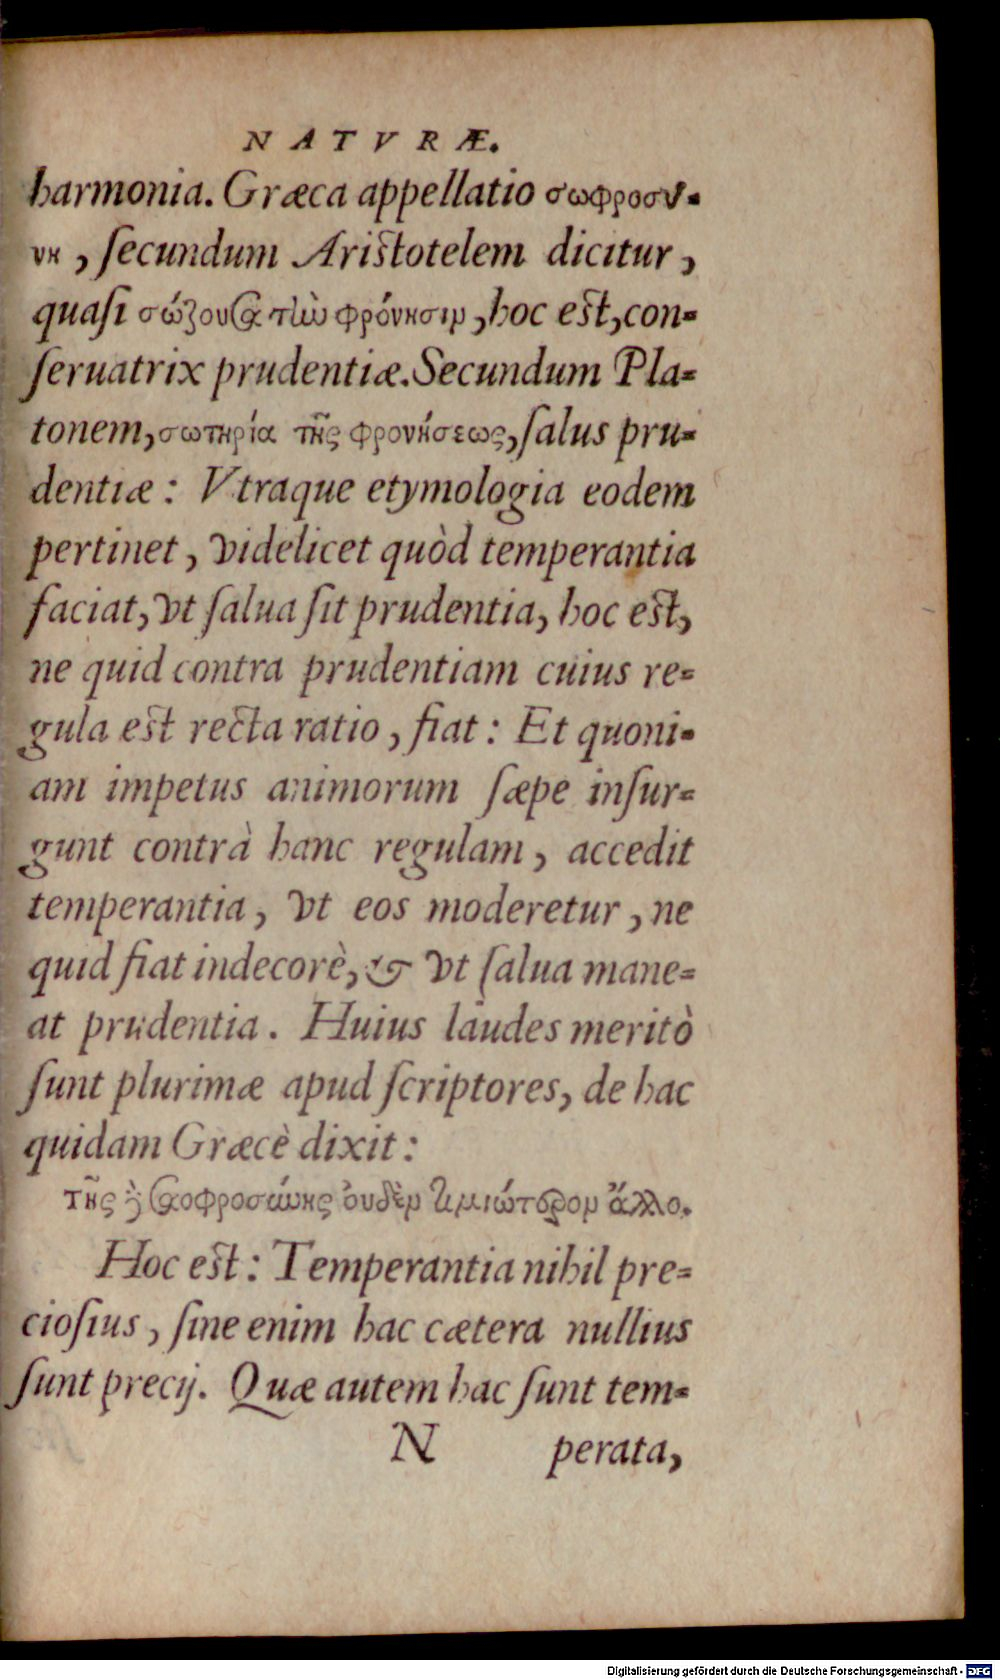 NATVRÆ.
harmonia. Græca appellatio σωφροσύ-
νη, ſecundum Ariſtotelem dicitur,
quaſi σώζουσα τὼ φρόνησιν, hoc eſt, con-
ſeruatrix prudentiæ. Secundum Pla-
tonem, σωτηρία τῆς φρονήσεως, ſalus pru-
dentiæ: Vtraque etymologia eodem
pertinet, videlicet quòd temperantia
faciat, vt ſalua ſit prudentia, hoc eſt,
ne quid contra prudentiam cuius re-
gula eſt recta ratio, fiat: Et quoni-
am impetus animorum ſæpe inſur-
gunt contrà hanc regulam, accedit
temperantia, vt eos moderetur, ne
quid fiat indecorè, & vt ſalua mane-
at prudentia. Huius laudes meritò
ſunt plurimæ apud ſcriptores, de hac
quidam Græcè dixit:
τῆς οὐδὲν τιμιώτερον ἄλλο.
Hoc eſt: Temperantia nihil pre-
cioſius, ſine enim hac cætera nullius
ſunt precij. Quæ autem hac ſunt tem-
N perata,
Digitalisierung gefördert durch die Deutsche Forschungsgemeinschaft - DFG